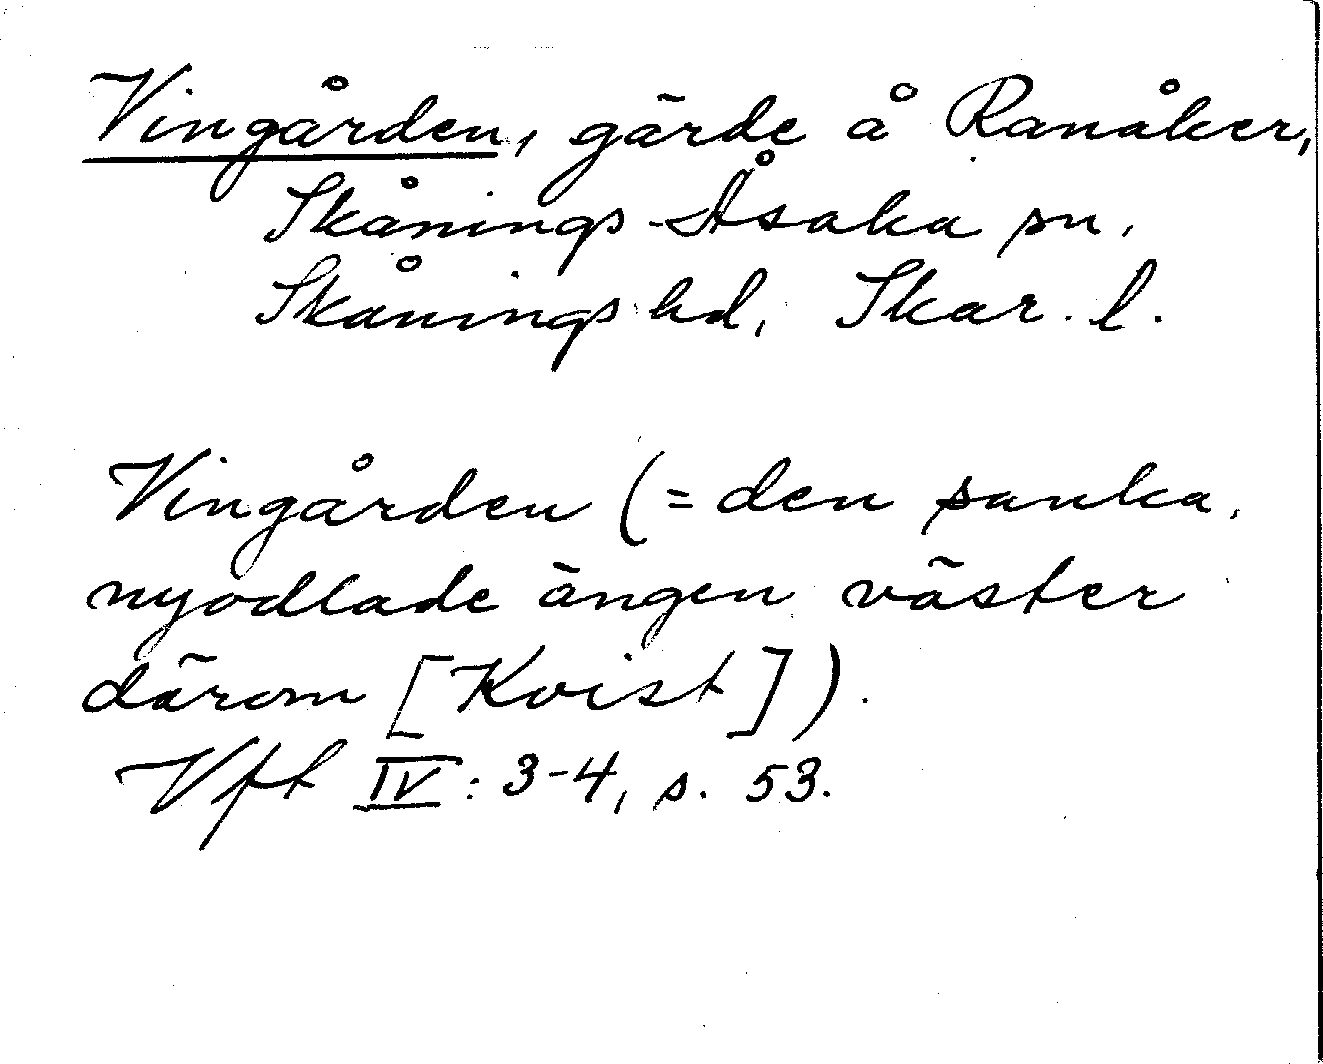 Vingården, gärde å Ranåker,
Skånings-Åsaka sn.
Skånings hd, Skar. l.
Vingården (= den sanka,
nyodlade ängen väster
därom [Kvist]).
Vft IV: 3-4, s. 53.